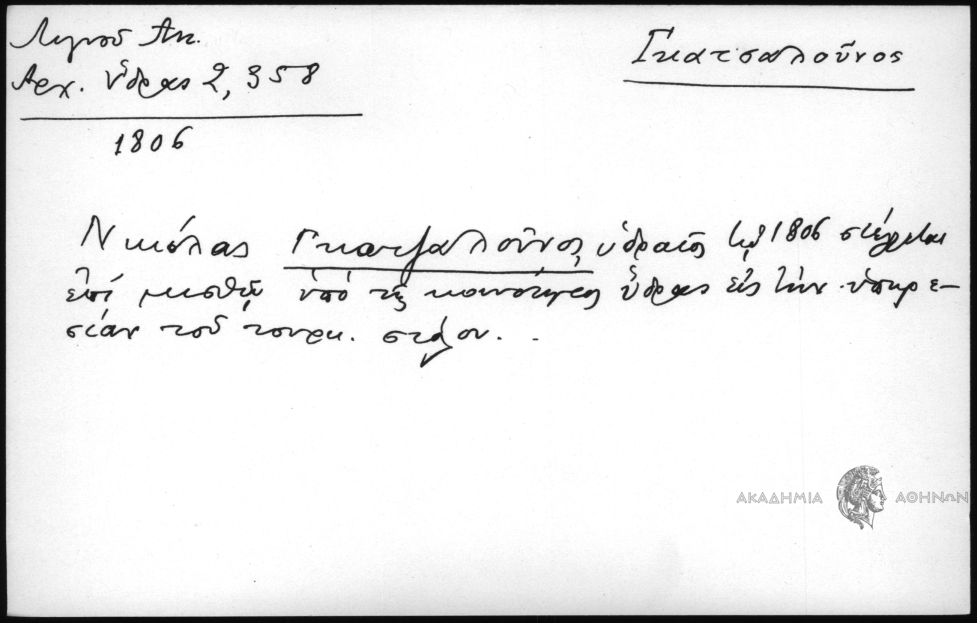 Λιγνοῦ Ἀντ.
Ἀρχ. Ὕδρας 2, 358
1806
Γκατσαλοῦνος
Νικόλας Γκατζαλοῦνος ὑδραῖος τῷ 1806 στέλλεται
ἐπί μισθῷ ὑπό τῆς κοινότητος Ὕδρας εἰς τήν ὑπηρε-
σίαν τοῦ τουρκ. στόλου. .
ΑΚΑΔΗΜΙΑ ΑΘΗΝΩΝ